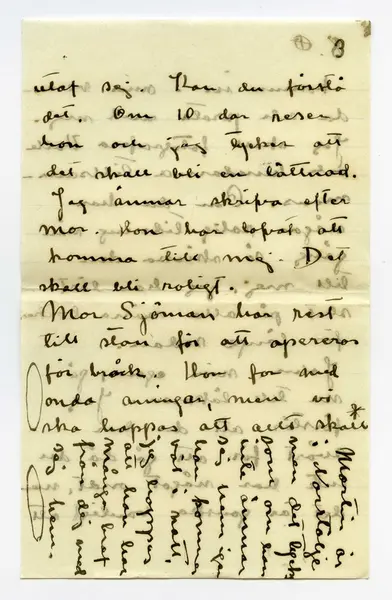 3
utaf sig. Kan du förstå
det. Om 10 dar reser
hon och jag tycker att
det skall bli en lättnad.
Jag ämnar skrifva efter
mor. Hon har lofvat att
komma till mej. Det
skall bli roligt.
Mor Sjöman har rest
till stan för att opereras
för bråck. Hon for med
onda aningar, men vi
ska hoppas att allt skall*
Martin är
i Norrtälje
men det tycks
som om han
inte ämnar
sig hem igen
han kommer
väl i natt.
Jag hoppas
att han har
många bref
från dig med
sig hem.